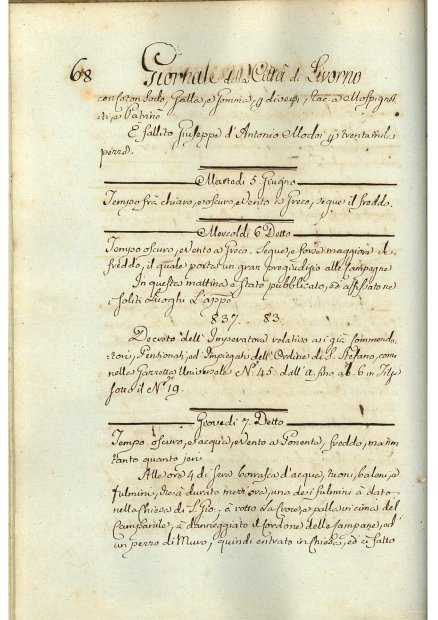 68
Giornale della Città di Livorno
con Coton Sodo, Galla, e Gomma, q diversi, rac a
e Patrino
E fallito Giuseppe d'Antonio q trenta mila
pezze.
Martedi 5 Giugno
Tempo frà chiaro, e oscuro, e vento a Greco, segue il freddo.
Mercoldi 6 Detto
Tempo oscuro, e Vento a Greco. Segue, e forse maggiore il
freddo, il quale porta un gran progiudizio alle Campagne
In questa mattina è stato pubblicato, ed affissato ne
soliti Luoghi L'appò
837. 83.
Decreto dell'Imperatore relativo a i già Commenda-
tori, Pensionati, ed Impiegati dell'Ordine di S. Stefano, come
nelle Gazzetta Universale Nº. 45. dall'a fino a b. 6 in Filza
sotto il Nº. 19.
Giovedi 7. Detto
Tempo oscuro, e acqua, e Vento a Ponente, freddo, ma non
tanto quanto jeri
Alle ore 4 di sera borrasca d'acqua, tuoni, baleni, e
fulmini, che à durato mezz'ora, uno de i fulmini à dato
nella Chiesa di S. Gio, à rotto La Croce, e palla in cima del
Campanile, à danneggiato il Cordone delle Campane, ed
un pezzo di Muro, quindi entrato in Chiesa, ed ci fatto